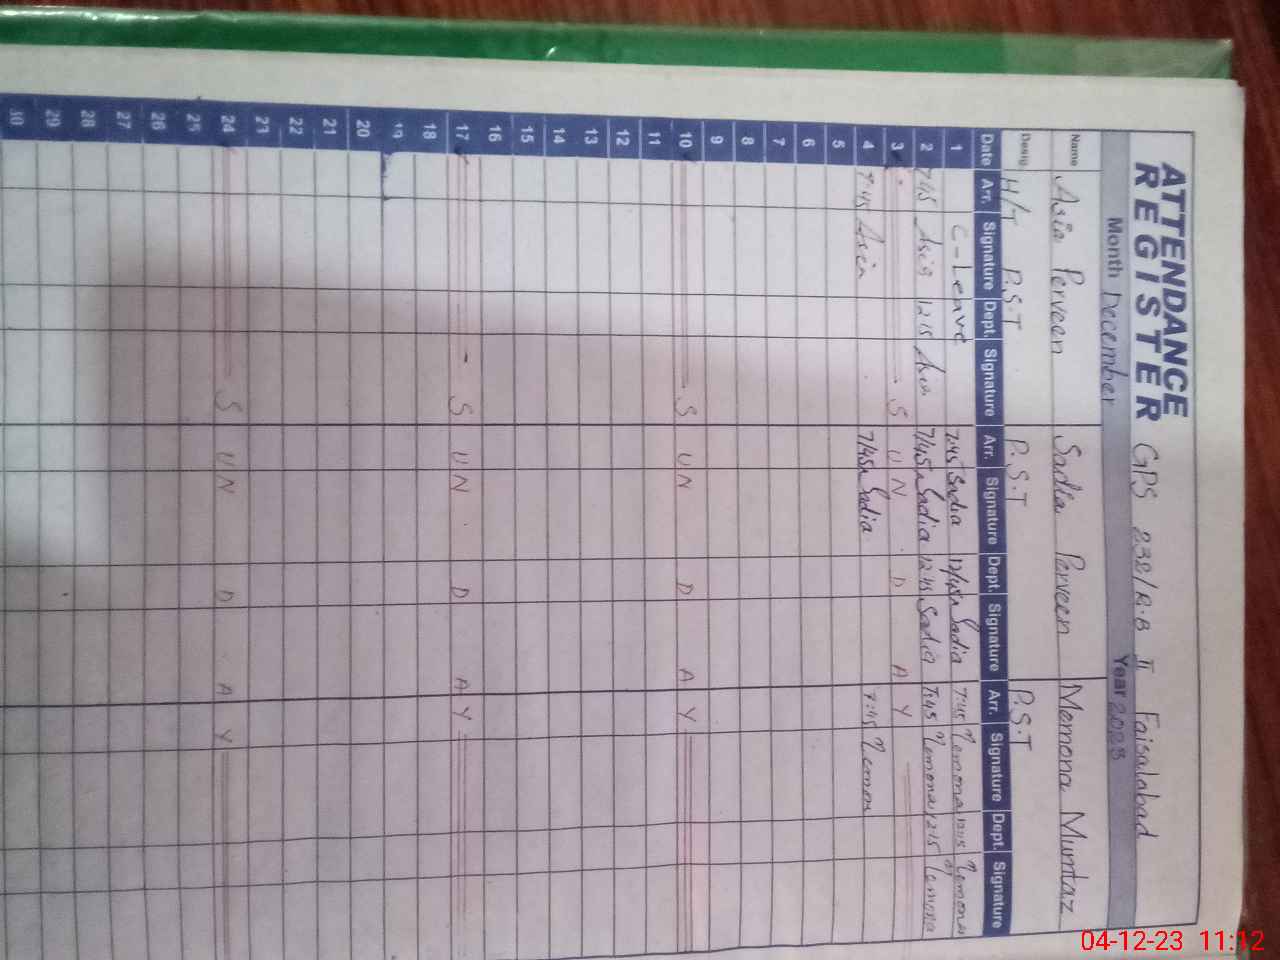 ATTENDANCE
REGISTER GPS 232/R.B II Faisalabad
Month December Year 2023
Name Asia Perveen Sadia Perveen Momona Mumtaz
Desig. H/T P.S.T P.S.T P.S.T
Date Arr. Signature Dept. Signature Arr. Signature Dept. Signature Arr. Signature Dept. Signature
1 C-Leave 7:45 Sadia 12/45 Sadia 7:45 Memona 12:15 Memona
2 7:45 Asia 12 15 Asia 7/45 Sadia 12:45 Sadia 7:45 Memona 12:15 Memona
3 S U N D A Y
4 7:45 Asia 7/45 Sadia 7:45 Memon
5
6
7
8
9
10 S U N D A Y
11
12
13
14
15
16
17 S U N D A Y
18
19
20
21
22
23
24 S U N D A Y
25
26
27
28
29
30
04-12-23 11:12